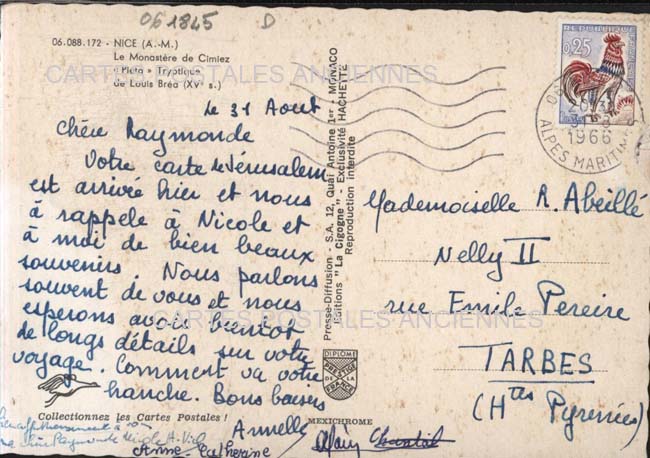 061845 D
06.088.172 - NICE (A.-M.)
Le Monastère de Cimiez
« Pieta » Tryptique
de Louis Bréa (XVe s.)
CARTES POSTALES ANCIENNES
le 31 Août
Chère Raymonde
Votre carte de Jérusalem
est arrivée hier et nous
a rappelé à Nicole et
à moi de bien beaux
souvenirs. Nous parlons
souvent de vous et nous
esperons avoir bientot
de longs détails sur votre
voyage. Comment va votre
hanche. Bons baisers
CARTES POSTALES ANCIENNES
Collectionnez les Cartes Postales !
Annelle
Anne Catherine
Alain Chantal
Presse-Diffusion - S.A. 12, Quai Antoine 1er - MONACO
Editions "La Cigogne" - Exclusivité HACHETTE
Reproduction interdite
DIPLOME
PRESTIGE
DE LA
FRANCE
MEXICHROME
REPUBLIQUE
0,25
1966
ALPES MARITIMES
Mademoiselle R. Abeillé
Nelly II
rue Emile Pereire
TARBES
(Htes Pyrenées)